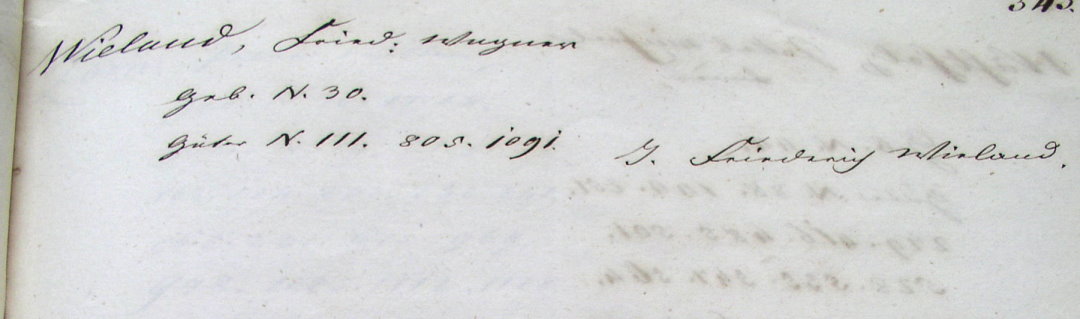 343.
Wieland, Fried: Wagner
Geb. N. 30.
Güter N. 111. 805. 1091.
J. Friederich Wieland.